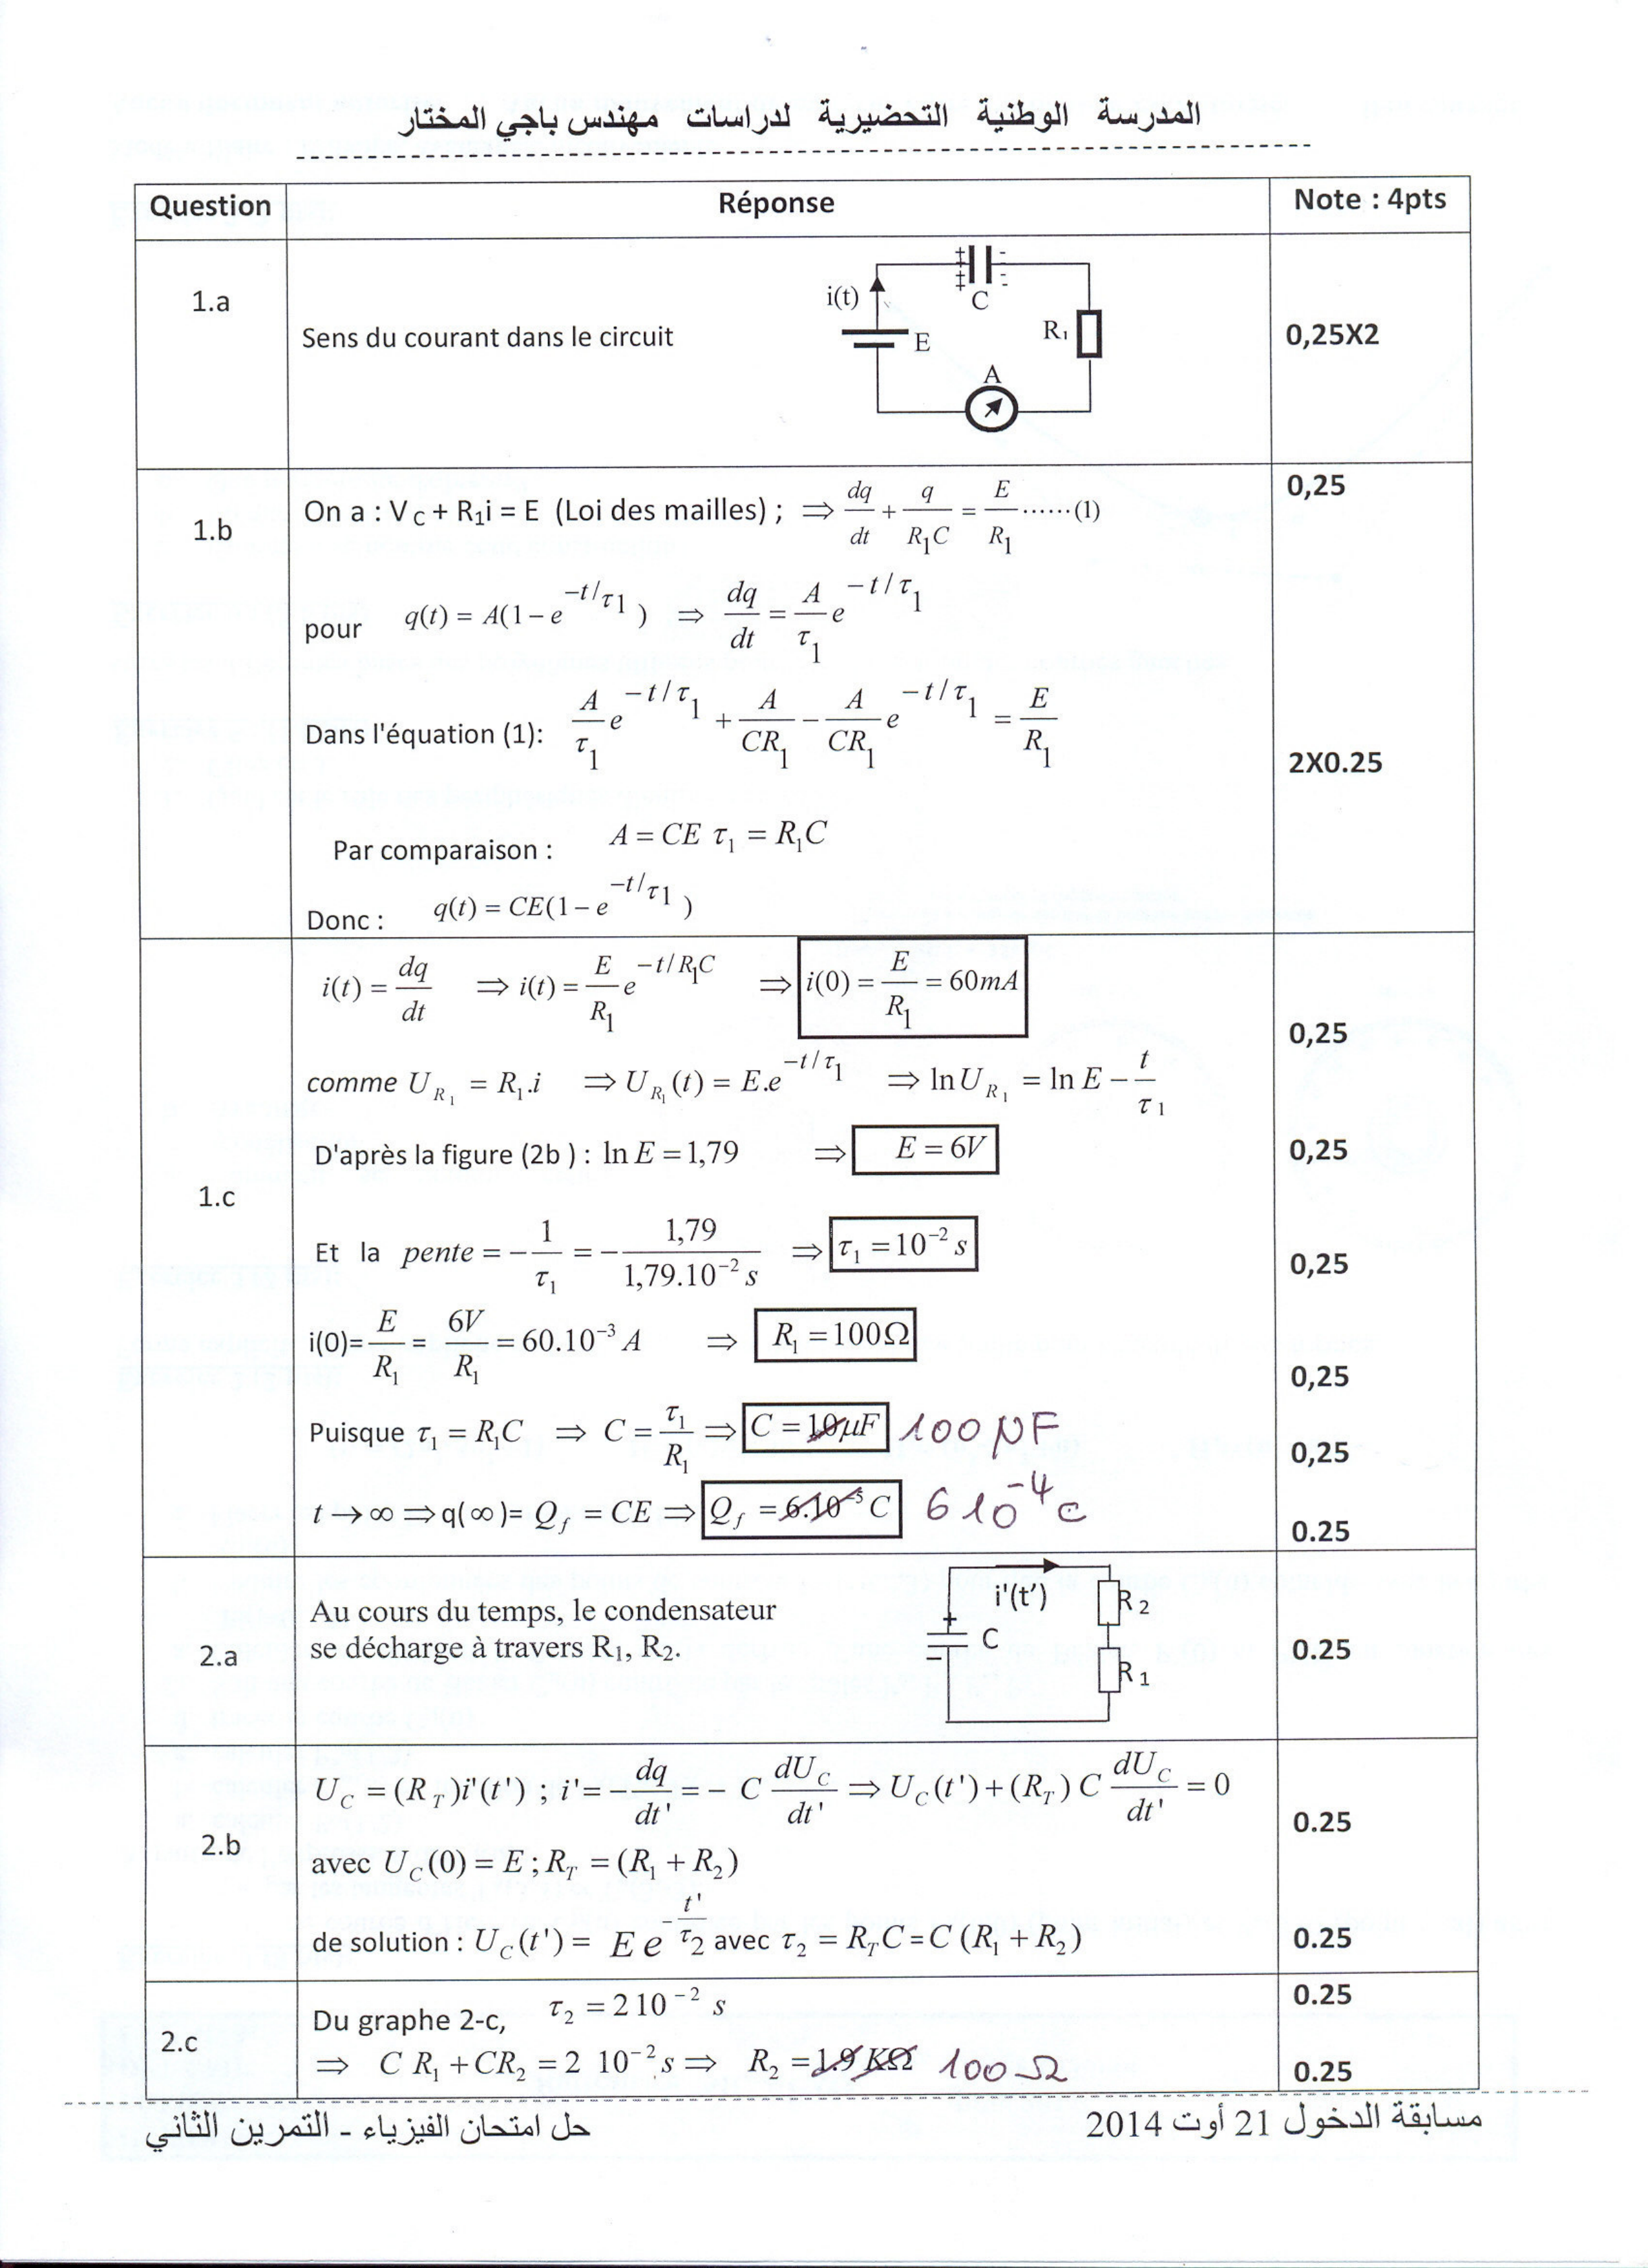 المدرسة الوطنية التحضيرية لدراسات مهندس باجي المختار
Question Réponse Note : 4pts
1.a
Sens du courant dans le circuit
i(t) C E R₁ A
0,25X2
1.b
On a : V C + R₁i = E (Loi des mailles) ; ⇒ dq/dt + q/R₁C = E/R₁ ……(1)
0,25
pour q(t) = A(1 − e^(−t/τ1)) ⇒ dq/dt = A/τ1 e^(−t/τ1)
Dans l'équation (1): A/τ1 e^(−t/τ1) + A/CR1 − A/CR1 e^(−t/τ1) = E/R1
2X0.25
Par comparaison : A = CE τ₁ = R₁C
Donc : q(t) = CE(1 − e^(−t/τ1))
1.c
i(t) = dq/dt ⇒ i(t) = E/R1 e^(−t/R1C) ⇒ i(0) = E/R1 = 60mA
0,25
comme U R₁ = R₁.i ⇒ U R₁ (t) = E.e^(−t/τ1) ⇒ ln U R₁ = ln E − t/τ1
D'après la figure (2b ) : ln E = 1,79 ⇒ E = 6V
0,25
Et la pente = − 1/τ₁ = − 1,79/1,79.10⁻² s ⇒ τ₁ = 10⁻² s
0,25
i(0)= E/R₁ = 6V/R₁ = 60.10⁻³ A ⇒ R₁ = 100Ω
0,25
Puisque τ₁ = R₁C ⇒ C = τ₁/R₁ ⇒ C = 10μF 100 μF
0,25
t → ∞ ⇒ q(∞)= Q f = CE ⇒ Q f = 6.10⁻⁵ C 6 10⁻⁴ c
0.25
2.a
Au cours du temps, le condensateur
se décharge à travers R₁, R₂.
i'(t') C + − R 2 R 1
0.25
2.b
U C = (R T)i'(t') ; i' = − dq/dt' = − C dU C/dt' ⇒ U C(t') + (R T) C dU C/dt' = 0
0.25
avec U C(0) = E ; R T = (R₁ + R₂)
de solution : U C(t') = E e^(−t'/τ2) avec τ₂ = R T C = C (R₁ + R₂)
0.25
2.c
Du graphe 2-c, τ₂ = 2 10⁻² s
0.25
⇒ C R₁ + CR₂ = 2 10⁻² s ⇒ R₂ = 1.9 KΩ 100 Ω
0.25
مسابقة الدخول 21 أوت 2014
حل امتحان الفيزياء - التمرين الثاني